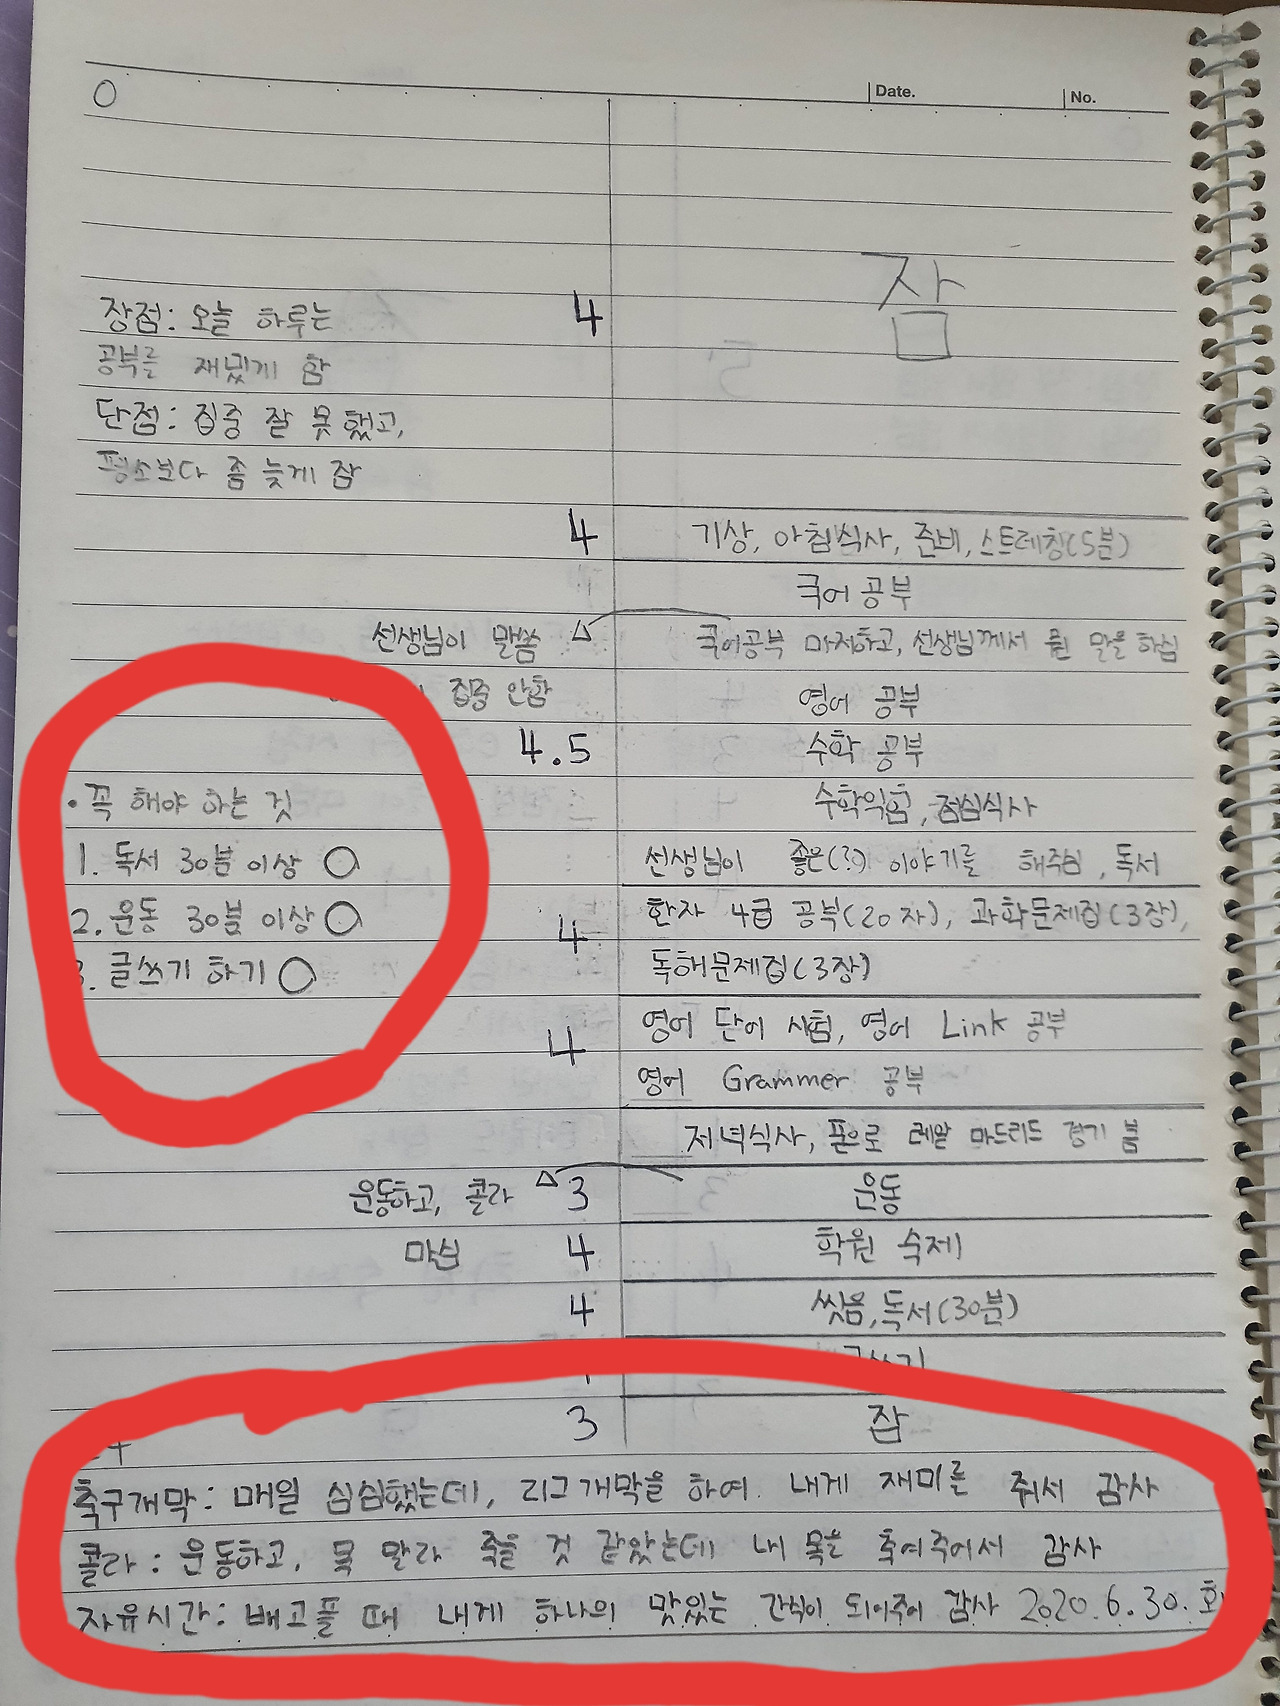 0
Date.
No.
잠
장점: 오늘 하루는
4
공부를 재밌게 함
단점: 집중 잘 못 했고,
평소보다 좀 늦게 잠
4
기상, 아침식사, 준비, 스트레칭(5분)
국어 공부
선생님이 말씀
국어공부 마저하고, 선생님께서 말을 하심
집중 안함
영어 공부
4.5
수학 공부
• 꼭 해야 하는 것
수학익힘, 점심식사
1. 독서 30분 이상 ○
선생님이 좋은(?) 이야기를 해주심, 독서
2. 운동 30분 이상 ○
4
한자 4급 공부(20자), 과학문제집(3장),
3. 글쓰기 하기 ○
독해문제집(3장)
4
영어 단어 시험, 영어 Link 공부
영어 Grammer 공부
저녁식사, 폰으로 레알 마드리드 경기 봄
운동하고, 콜라
3
운동
마심
4
학원 숙제
4
씻음, 독서(30분)
글쓰기
3
잠
축구개막: 매일 심심했는데, 리그개막을 하여 내게 재미를 줘서 감사
콜라: 운동하고, 목 말라 죽을 것 같았는데 내 목을 축여주어서 감사
자유시간: 배고플 때 내게 하나의 맛있는 간식이 되어주어 감사 2020.6.30.화